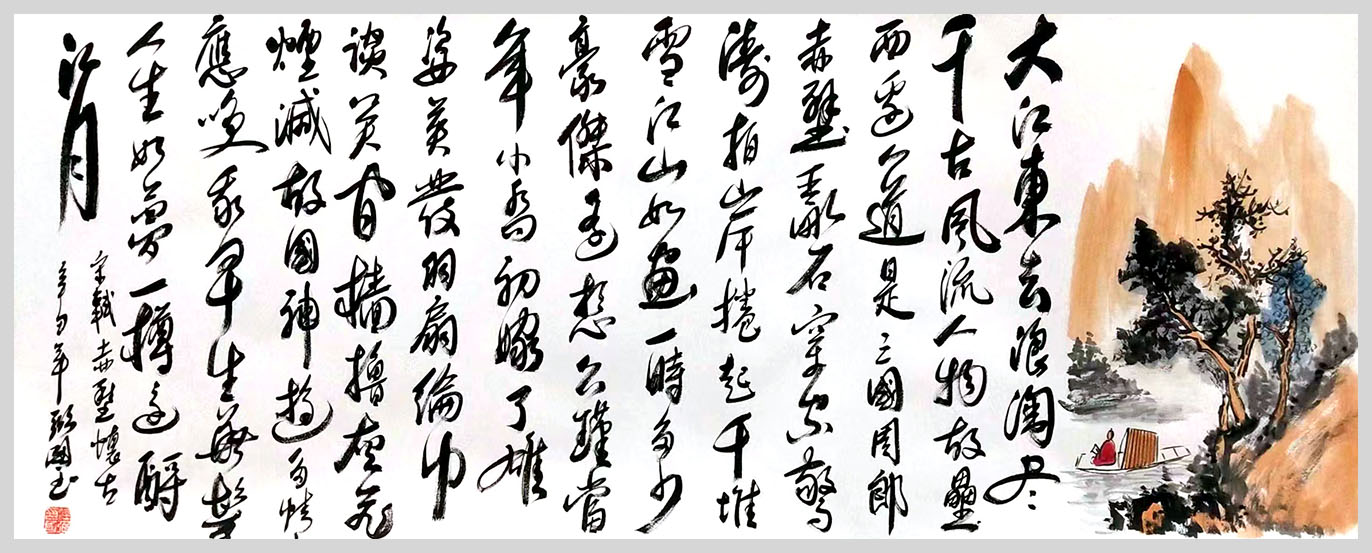 大江東去浪淘尽
千古風流人物故壘
西邊人道是三國周郎
赤壁亂石穿空驚
濤拍岸捲起千堆
雪江山如畫一時多少
豪傑遙想公瑾當
年小喬初嫁了雄
姿英發羽扇綸巾
談笑間檣櫓灰飛
煙滅故國神遊多情
應笑我早生華髮
人生如夢一樽還酹
江月
軾赤壁懷古
年國玉